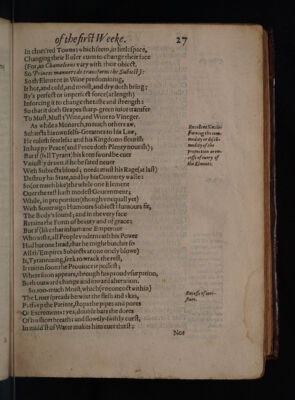 of the first Weeke. 27
In charte'd Townes; which seem, in little space,
Changing their Ruler eu'n to change their face:
(For, as Chameleons vary with their obiect,
So Princes manners do transforme the Subiect:)
So th'Element in Wine predomining,
It hot, and cold, and moist, and dry doth bring;
By's perfect or imperfect force (at length)
Inforcing it to change the taste and strength:
So that it doth Grapes sharp-green iuice transfer
To Must, Must t'Wine, and Wine to Vineger.
As while a Monarch, to teach others aw,
Subiects his owne selfe-Greatnes to his Law,
He ruleth fearelesse: and his Kingdoms flourish
In happy Peace (and Peace doth Plenty nourish);
But if (fell Tyrant) his keen sword be euer
Vniustly drawn, if he be sated neuer
With Subiects bloud; needs must his Rage (at last)
Destroy his State, and lay his Country waste:
So (or much like) the while one Element
Ouer the rest hath modest Gouernment;
While, in proportion (though vnequall yet)
With Soueraign Humours Subiect-humours fit,
The Body's sound; and in the very face
Retaine the Form of beauty and of grace:
But if (like that inhumane Emperour
Who wisht, all People vnderneath his Power
Had but one head, that he might butcher so
All th'Empires Subiects at one onely blowe)
It, Tyrannizing, seek to wrack the rest,
It ruines soon the Prouince it possest;
Where soon appears, through his proud vsurpation,
Both outward change and inward alteration.
So, too-much Moist, which (vnconcoct within)
The Liuer spreads betwixt the flesh and skin,
Puffs vp the Patient, stops the pipes and pores
Of Excrements; yea, double bars the dores
Of his short breath; and slowly-swiftly curst,
In midd'st of Water makes him euer thirst;
Excellent Similes
of the Elements.
Excesse of moisture.
Nor